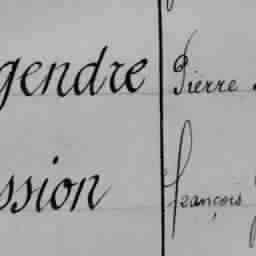 gendre Pierre
ssion François